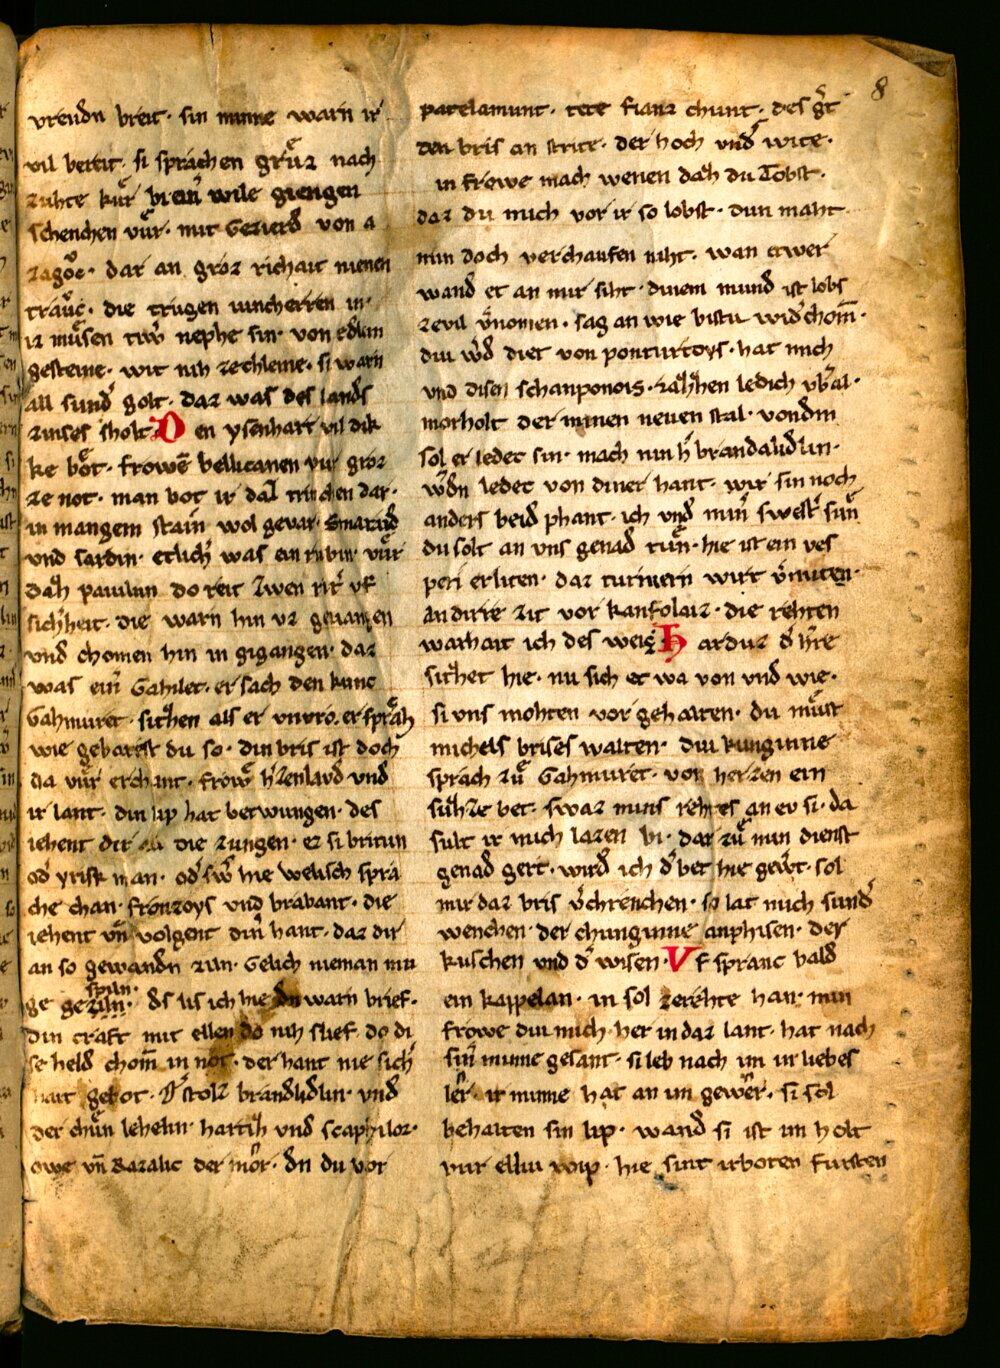 8
vrendn breit · sin minne warn ir
vil bereit · si sprachen gruͦz nach
zuhte kuͤr · wile giengen
schenchen vuͤr · mit Gezierd von a
zagoͮc · dar an groz richait nienen
trauͦc · die trugen iuncherren in ·
iz muͤsen nephe sin · von edlm
gesteine · wit nih zechleine · si warn
all sund͛ golt · daz was des landͤs
zinses sholt · Den ysenhart vil dik
ke boͤt · frowen̄ bellicanen vur groz
ze not · man bot ir dar ·
in mangem stain wol gevar · smaraid
vnd sardin · etlich͛ was ein rubin · vuͤr
daͤh pauilun do reit zwen rit͛ vf
sich͛heit · die warn hin vz geuangen
vnd chomen hin in gigangen · daz
was ein͛ Gahilet · er sach den kunc
Gahmuret · sitzhen als er vnvro · er spraͤh
wie gebarest du so · din bris ist doch
da vuͤr erchant · frow̄ h͛zenlaud vnd
ir lant · din lip hat betwungen · des
iehent dir die zungen · ez si britun
od͛ yrisk man · od͛ sw͛ hie welisch spra
che chan · fronzoys vnd brabant · die
iehent vn̄ volgent din͛ hant · daz dir
an so gewandn zun · Gelich nieman mu
spiln ·
ge gezun · ds lis ich hie dn warn brief ·
din craft mit ellen do nih slief · do di
se held chom̄ in not · der hant nie sich͛
hait gebot · stolz brandlidlin · vnd
der chuͤn lehelin · hartih vnd scaphilor ·
owe vn̄ Razalic der mor · dn du vor
patelamunt · tete fianz chunt · des g͛t
den bris an strite · der hoch vndͤ wite ·
in frowe mach wenen daͤh du Tobst ·
daz du mich vor ir so lobst · dun maht
min doch verchaufen niht · wan etwer
wandͤ et an mir siht · dinem mund ist lobs
zevil v͛nomen · sag an wie bistu widͤ͛chom̄ ·
diu w͛dͤ diet von ponturtoys · hat mich
vnd disen schanponois · ledich vb͛al ·
morholt der minen neuen stal · vondm
sol er ledet sin · mach min h͛ brandalidlin ·
w͛dn ledet von diner hant · wir sin noch
anders beid phant · ich vndͤ min͛ swest͛ suͤn
du solt an vns genadͤ tuͤn · hie ist ein ves
peri erliten · daz turniern wirt v͛miten ·
an dirre zit vor kanfolaiz · die rehten
warhait ich des weiz Harduz dͤ h͛re
sitzhet hie · nu sich et wa von vnd wie ·
si vns mohten vor gehalten · du muͤst
michels brises walten · diu kunginne
sprach zuͦ Gahmuret · von herzen ein
suͤhze bet · swaz mins rehtes an ev si · da
sult ir mich lazen bi · dar zuͦ min dienst
genadͤ gert · wirdͤ ich dͤ͛ bet hie gew͛t · sol
mir daz bris v͛chrenchen · so lat mich sundͤ͛
wenchen · der chunginne anphisen · der
kuschen vnd dͤ͛ wisen · Vf spranc bald
ein kappelan · in sol zerehte han · min
frowe diu mich her in daz lant · hat nach
sin͛ minne gesant · si leb nach im vr liebes
ler͛ · ir minne hat an im gewer͛ · si sol
behalten sin lip · wandͤ si ist im holt
vur elliu wip · hie sint irboten fursten